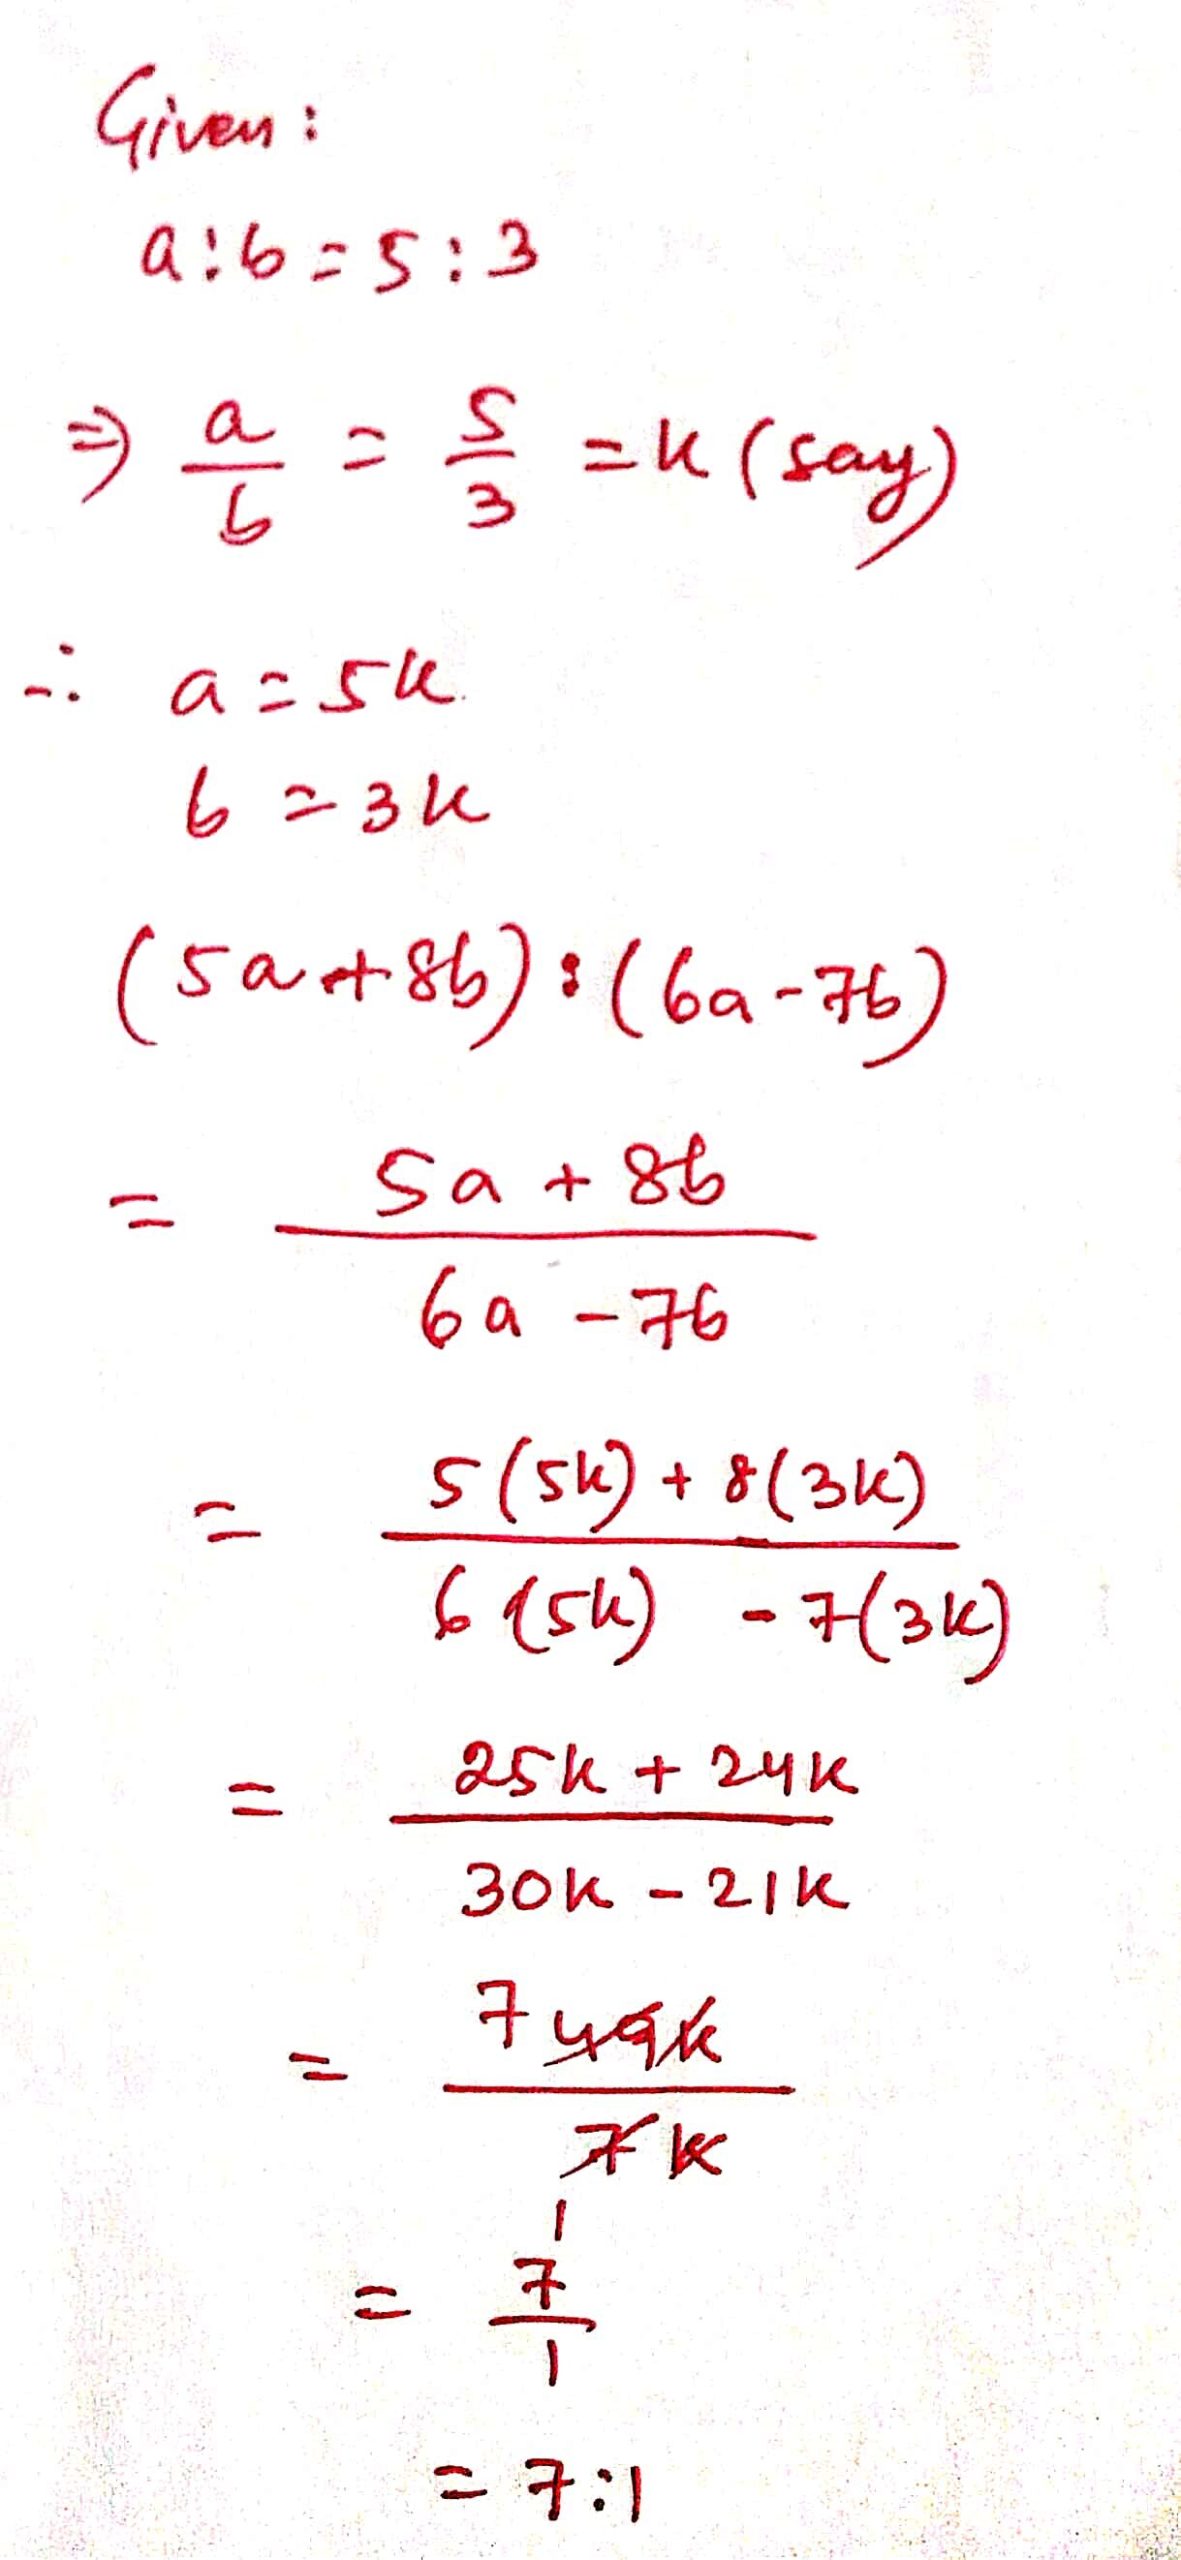 Given:
a:b = 5:3
⇒ a/b = 5/3 = k (say)
∴ a = 5k
b = 3k
(5a + 8b) : (6a - 7b)
= (5a + 8b)/(6a - 7b)
= (5(5k) + 8(3k))/(6(5k) - 7(3k))
= (25k + 24k)/(30k - 21k)
= 7 49k/7k 1
= 7/1
= 7:1